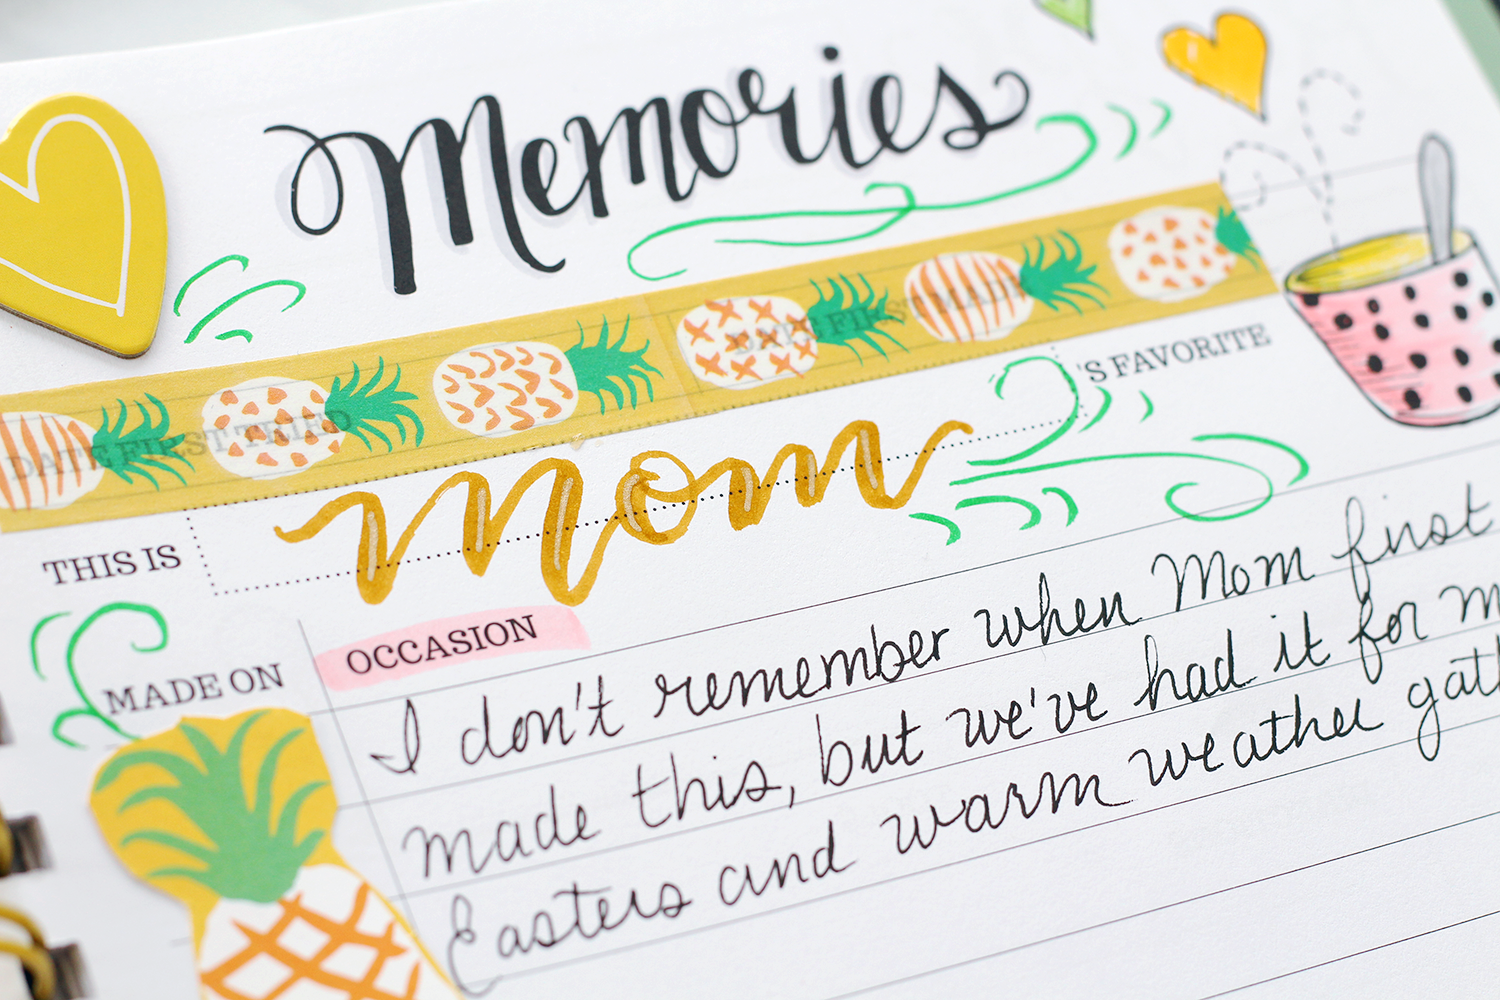 Memories
DATE FIRST TRIED
DATE FIRST MADE
THIS IS mom 'S FAVORITE
MADE ON
OCCASION
I don't remember when Mom first
made this, but we've had it for m
Easters and warm weather gath